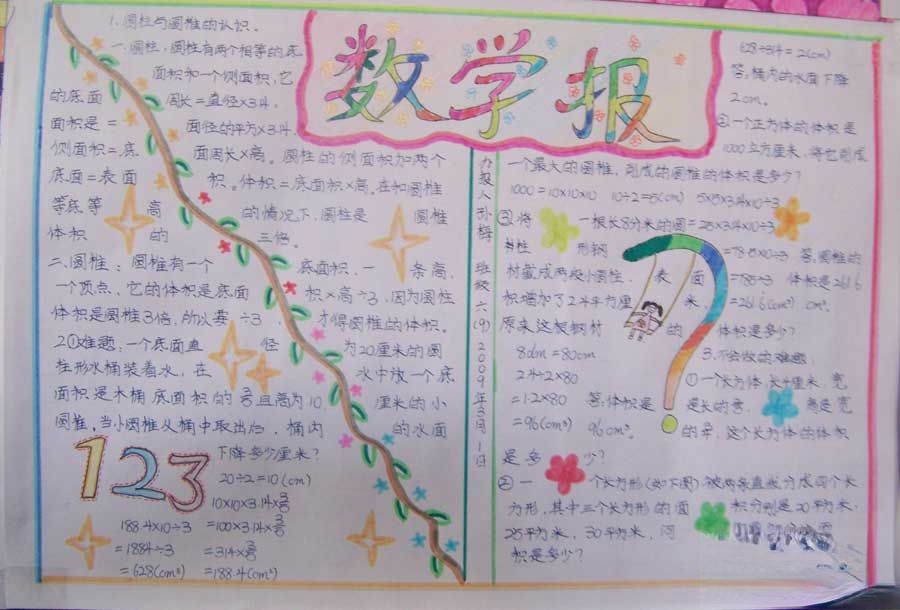 数学报
1、圆柱与圆椎的认识。
一、圆柱:圆柱有两个相等的底
面积和一个侧面积,它
的底面 周长=直径×3.14,
面积是= 面径的平方×3.14,
侧面积=底 面周长×高。圆柱的侧面积加两个
底面=表面 积。体积=底面积×高。在和圆椎
等底等 高 的情况下,圆柱是 圆椎
体积 的 三倍。
二、圆椎:圆椎有一个 底面积,一 条高,
一个顶点,它的体积是底面 积×高÷3,因为圆柱
体积是圆椎3倍,所以要÷3, 才得圆椎的体积。
2①难题:一个底面直 径 为20厘米的圆
柱形水桶装着水,在 水中放一个底
面积是木桶底面积的3/5且高为10 厘米的小
圆椎,当小圆椎从桶中取出后,桶内 的水面
下降多少厘米?
123
20÷2=10(cm)
10×10×3.14×3/5
=100×3.14×3/5
=314×3/5
=188.4(cm²)
188.4×10÷3
=1884÷3
=628(cm³)
办报人 孙梅 班级 六(9) 2009年3月1日
628÷314=2(cm)
答:桶内的水面下降
2cm。
②一个正方体的体积是
1000立方厘米,将它削成
一个最大的圆椎,削成的圆椎的体积是多少?
1000=10×10×10 10÷2=5(cm) 5×5×3.14×10÷3
=25×3.14×10÷3
=78.5×10÷3
=785÷3
=261.6(cm³)
答:圆椎的
体积是261.6
cm³。
③将 一根长8分米的圆
柱 形钢
材截成两段小圆柱, 表 面
积增加了2.4平方厘 米
原来这根钢材 的 体积是多少?
8dm=80cm
2.4÷2×80
=1.2×80
=96(cm³)
答:体积是
96cm³。
3、不会做的难题:
①一个长方体,长4厘米,宽
是长的 高是宽
的 这个长方体的体积
是多 少?
②一 个长方形(如下图)被两条直线分成四个长
方形,其中三个长方形的面 积分别是20平方米,
25平方米,30平方米,问
积是多少?